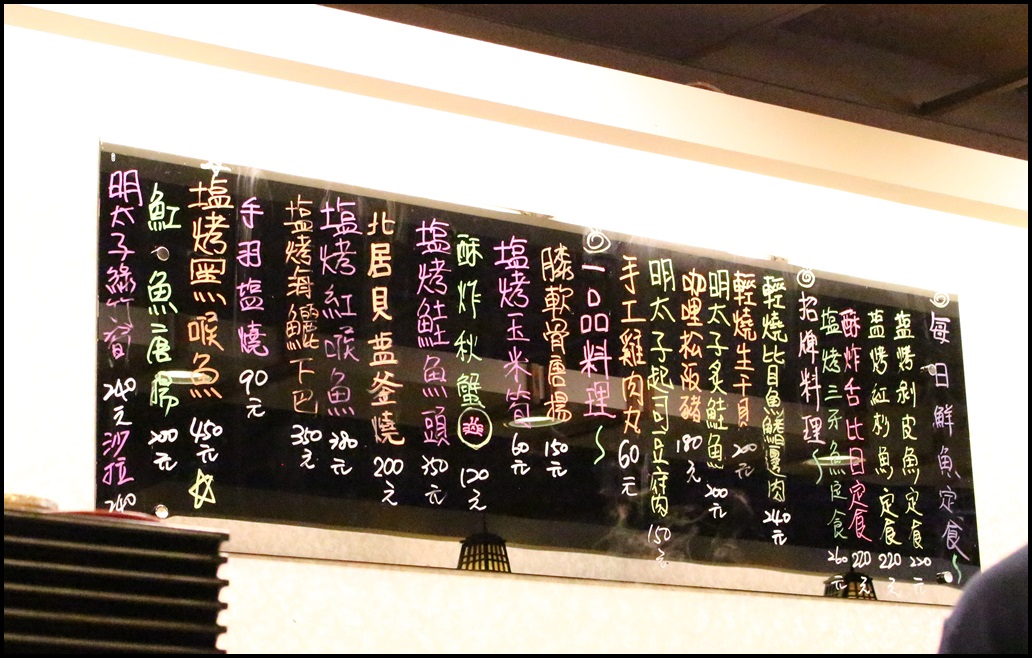 ◎每日鮮魚定食～
塩烤剝皮魚定食 220元
塩烤紅杉魚定食 220元
酥炸舌比目定食 220元
塩烤三牙魚定食 260元
◎招牌料理～
輕燒比目魚鰭邊肉 240元
輕燒生干貝 200元
明太子炙鮭魚 200元
咖哩松阪豬 180元
明太子起司豆腐肉 150元
手工雞肉丸 60元
◎一口品料理～
膝軟骨唐揚 150元
塩烤玉米筍 60元
酥炸秋蟹 120元
塩烤鮭魚頭 350元
北居貝盐釜燒 200元
塩烤紅喉魚 380元
塩烤海鱺下巴 350元
手羽塩燒 90元
塩烤黑喉魚 450元
魟魚唐揚 200元
明太子綠竹筍 240元 沙拉 240